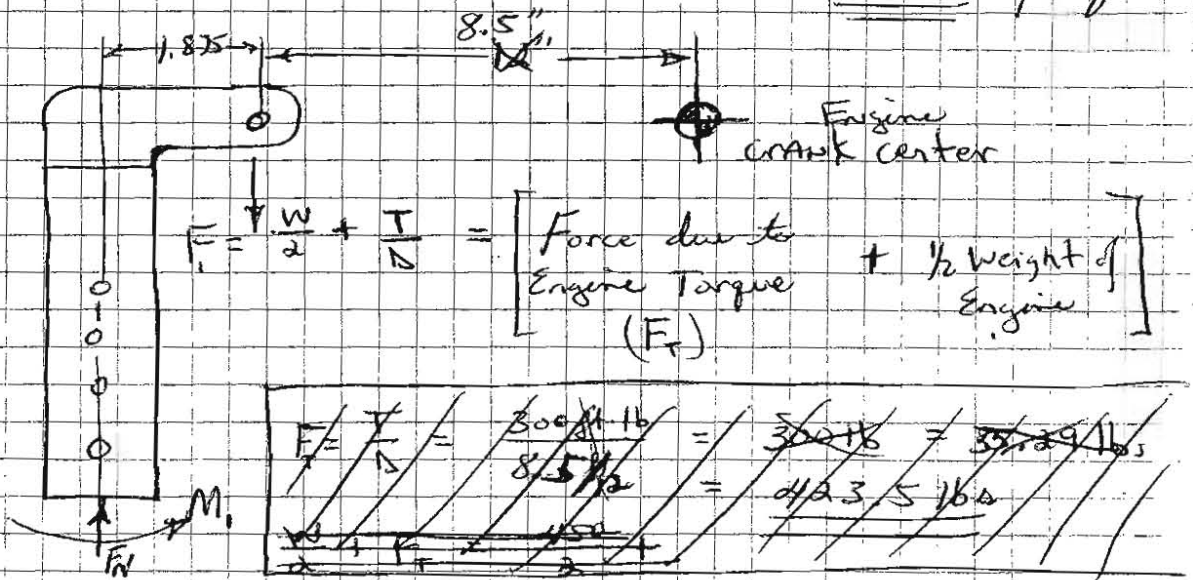 8.5"
1.875
Engine
CRANK center
F₁ = W/2 + T/D = [Force due to Engine Torque (F_T) + 1/2 Weight of Engine]
F_T = T/D = 300 ft·lb / 8.5/12 = 300 lb = 35.29 lbs
= 423.5 lbs
W/2 + F_T = 450/2 +
M₁
F_N